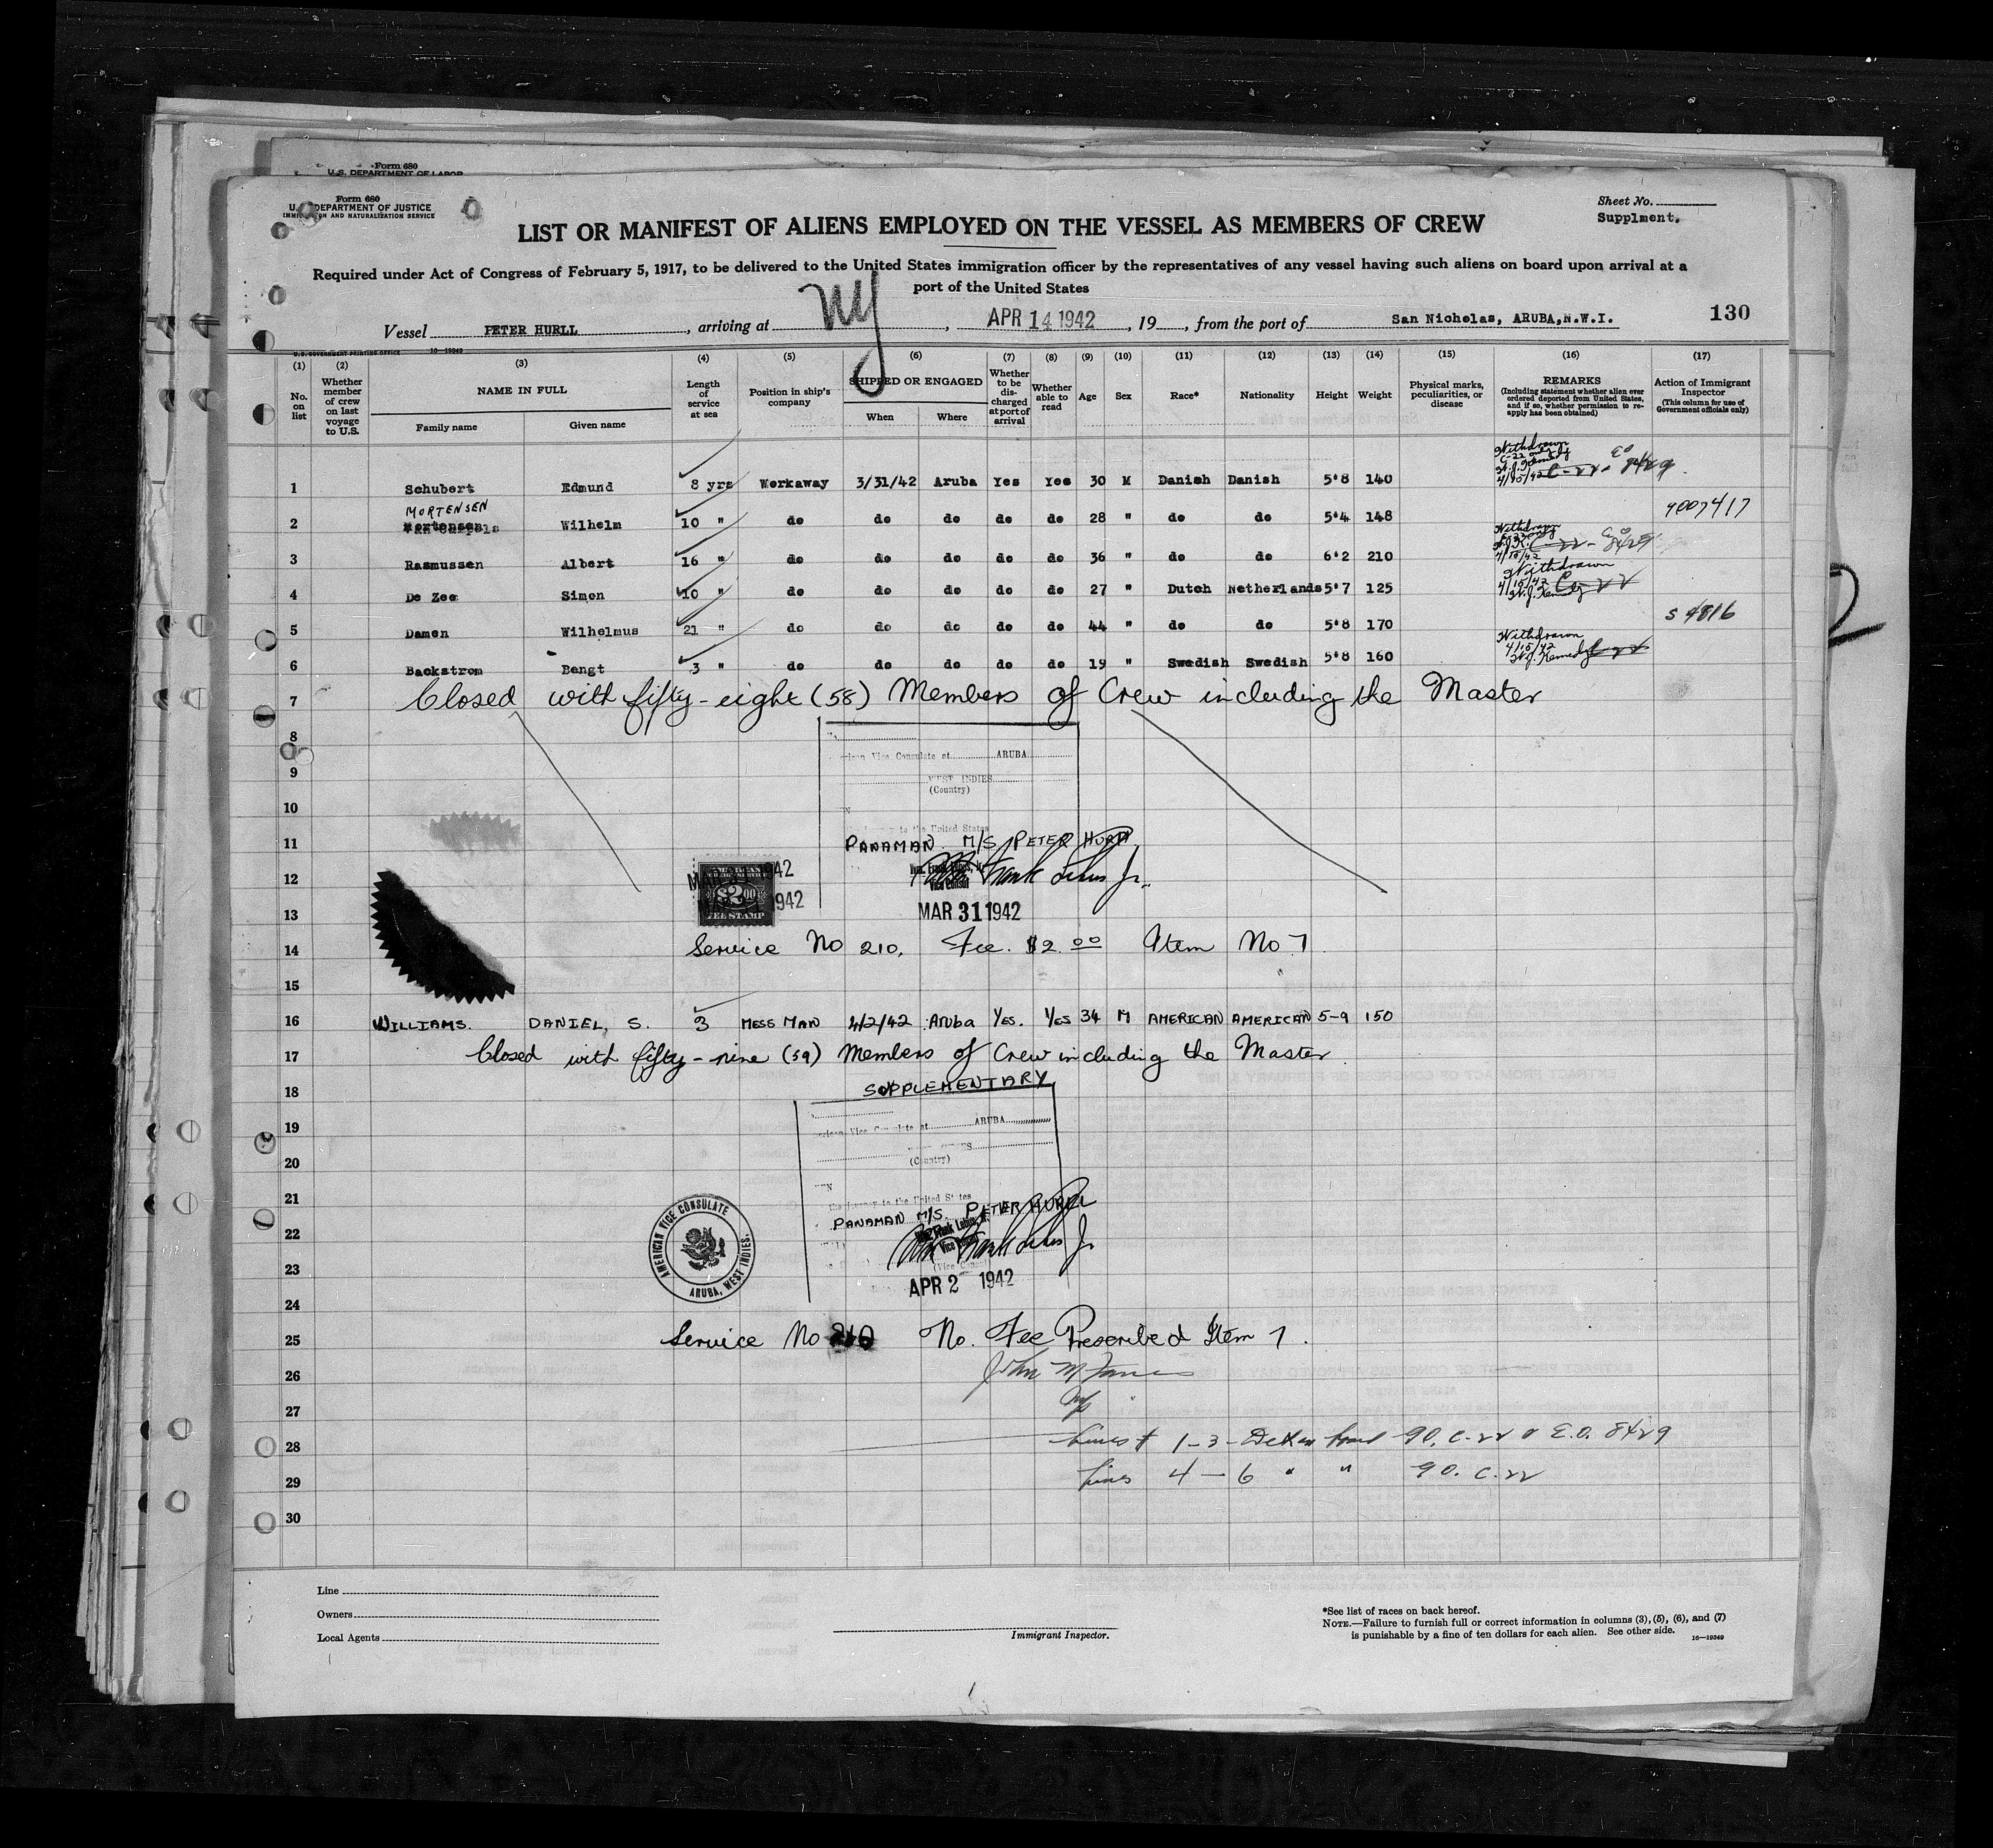 Form 680
U.S. DEPARTMENT OF LABOR
Form 680
U. S. DEPARTMENT OF JUSTICE
IMMIGRATION AND NATURALIZATION SERVICE
Sheet No.
Supplment.
LIST OR MANIFEST OF ALIENS EMPLOYED ON THE VESSEL AS MEMBERS OF CREW
Required under Act of Congress of February 5, 1917, to be delivered to the United States immigration officer by the representatives of any vessel having such aliens on board upon arrival at a
port of the United States
Vessel PETER HURLL, arriving at NY, APR 14 1942, 19, from the port of San Nicholas, ARUBA,N.W.I. 130
U.S. GOVERNMENT PRINTING OFFICE 16—19349
(1) (2) (3) (4) (5) (6) (7) (8) (9) (10) (11) (12) (13) (14) (15) (16) (17)
No. on list
Whether member of crew on last voyage to U.S.
NAME IN FULL
Family name
Given name
Length of service at sea
Position in ship's company
SHIPPED OR ENGAGED
When
Where
Whether to be discharged at port of arrival
Whether able to read
Age
Sex
Race*
Nationality
Height
Weight
Physical marks, peculiarities, or disease
REMARKS
(Including statement whether alien ever ordered deported from United States, and if so, whether permission to reapply has been obtained)
Action of Immigrant Inspector
(This column for use of Government officials only)
Withdrawn
C-22 only
W.J. Kennedy
4/15/42 C-22. EO 8429.
1 Schubert Edmund 8 yrs Workaway 3/31/42 Aruba Yes Yes 30 M Danish Danish 5'8 140
MORTENSEN
2 Wilhelm 10 " do do do do do 28 " do do 5'4 148 4007417
Withdrawn
4/15/42 C-22 - EO 8429
3 Rasmussen Albert 16 " do do do do do 36 " do do 6'2 210
Withdrawn
4/15/42
W.J. Kennedy
4 De Zee Simon 10 " do do do do do 27 " Dutch Netherlands 5'7 125
5 Damen Wilhelmus 21 " do do do do do 44 " do do 5'8 170 S 4816
Withdrawn
4/15/42
W.J. Kennedy
6 Backstrom Bengt 3 " do do do do do 19 " Swedish Swedish 5'8 160
7 Closed with fifty-eight (58) Members of Crew including the Master
8
American Vice Consulate at ARUBA
9
WEST INDIES
(Country)
10
to the United States
11 PANAMAN. M/S PETER HURLL
12
Vice Consul
MAR 31 1942
$2.00
FEE STAMP
13
14 Service No 210. Fee. $2.00 Item No 7.
15
16 WILLIAMS. DANIEL, S. 3 MESS MAN 4/2/42 Aruba Yes. Yes 34 M AMERICAN AMERICAN 5-9 150
17 Closed with fifty-nine (59) Members of Crew including the Master
18 SUPPLEMENTARY
19 American Vice Consulate at ARUBA
20 (Country)
21 to the United States
PANAMAN M/S. PETER HURLL
22
Vice Consul
23
APR 2 1942
AMERICAN VICE CONSULATE
ARUBA, WEST INDIES.
24
25 Service No 210 No. Fee Prescribed Item 7.
26
27
28 Lines 1-3 - Detain 90. C-22 & E.O. 8429
29 Lines 4-6 " " 90. C-22
30
Line
Owners
Local Agents
Immigrant Inspector.
*See list of races on back hereof.
NOTE.—Failure to furnish full or correct information in columns (3), (5), (6), and (7)
is punishable by a fine of ten dollars for each alien. See other side. 16—19349